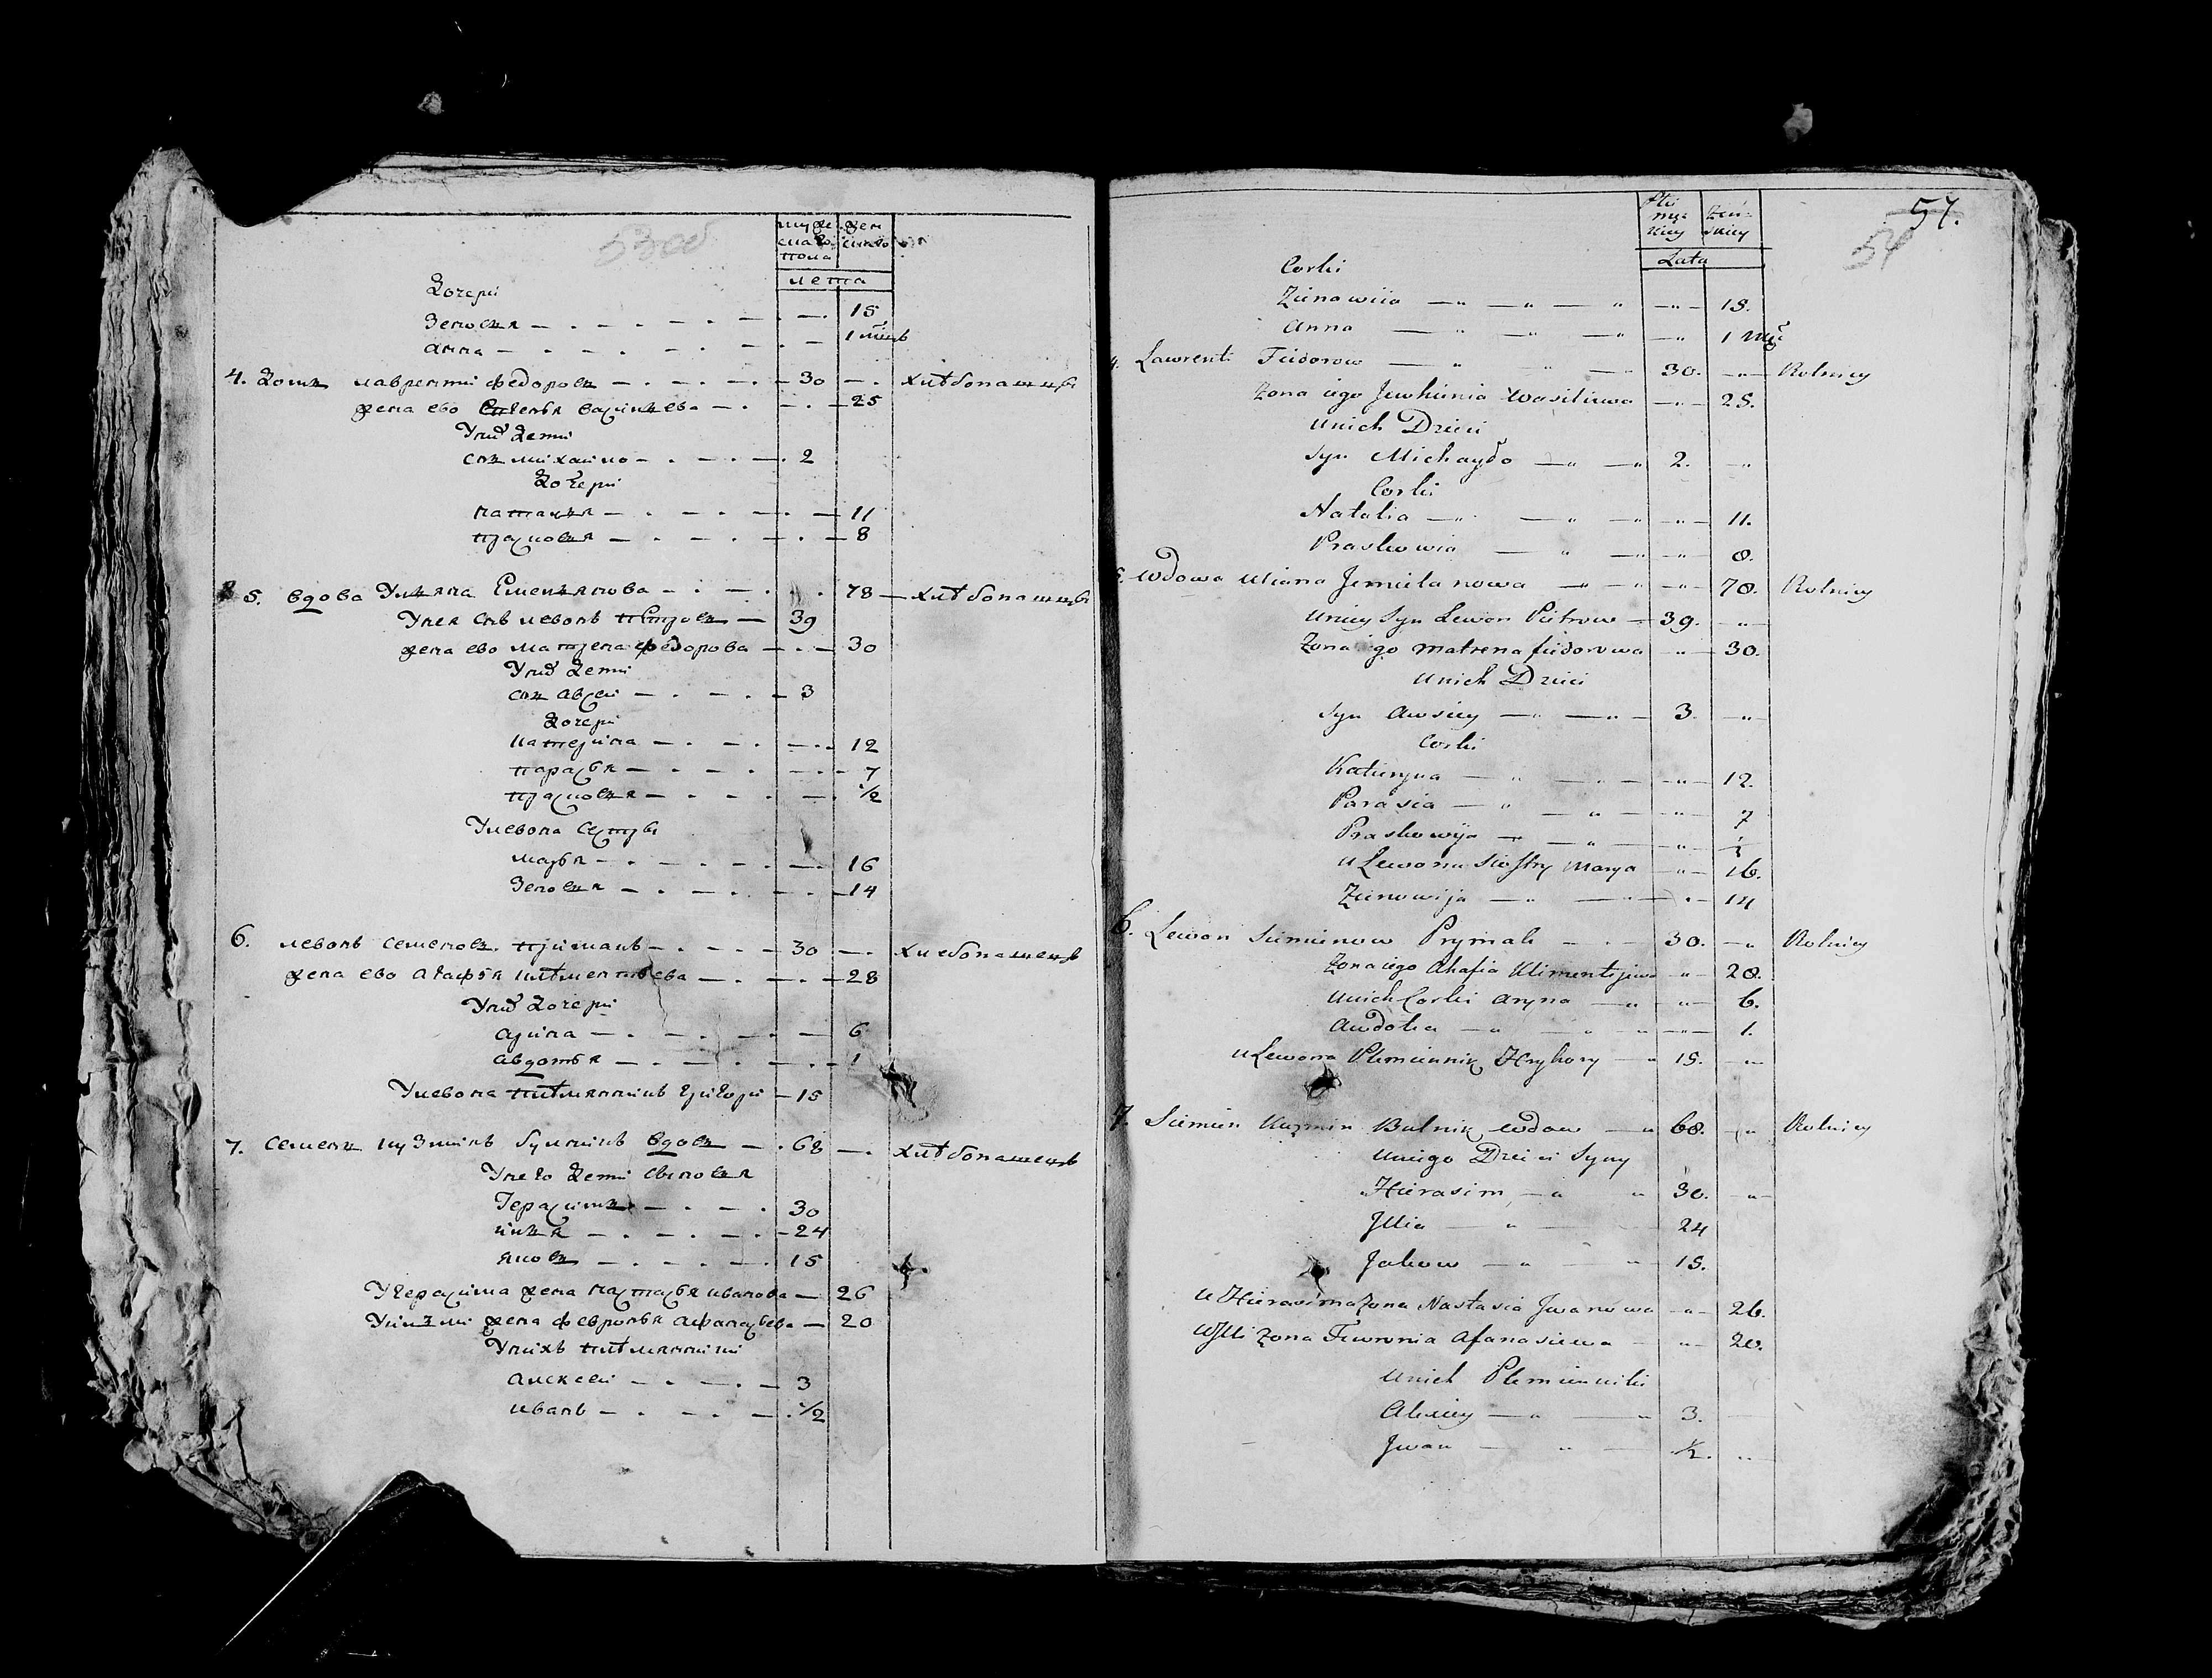 53 об
мужеска женска
пола
лета
Дочери
Зеновья — 15
анна — 1 мць
4. Домъ лаврентий федоровъ — 30 — хлѣбопашцы
жена ево васильева — 25
У них дети
снъ михаило — 2
Дочери
наталья — 11
прасковья — 8
5. вдова Ульяна Емельянова — 78 — хлѣбопашцы
У нея снъ левонъ петровъ — 39
жена ево матрена федорова — 30
У них дети
снъ авсеи — 3
Дочери
катерина — 12
парасья — 7
прасковья — 1/2
У левона сестры
марья — 16
Зеновья — 14
6. левонъ семеновъ примакъ — 30 — хлебопашецъ
жена ево агафья климентьева — 28
У них дочери
арина — 6
авдотья — 1
У левона племянникъ григори — 15
7. семенъ кузминъ булникъ вдовъ — 68 — хлѣбопашецъ
У него дети сыновья
Герасимъ — 30
илья — 24
яковъ — 15
У герасима жена настасья иванова — 26
У ильи жена февронья афанасьева — 20
У нихъ племянники
алексеи — 3
иванъ — 1/2
57.
54
Płci
męz żeń
kiey skiey
Lata
Corki
Zienowiia — 15.
Anna — 1 mc
4. Lawrenti Fiedorow — 30. — Rolnicy
Zona iego Jewhienia Wasiliewa — 25.
U nich Dzieci
Syn Michaydo — 2.
Corki
Natalia — 11.
Praskowia — 8.
5. Wdowa Uliana Jemielanowa — 78. Rolnicy
U niey Syn Lewon Pietrow — 39.
Zona iego Matrena fiedorowa — 30.
U nich Dzieci
Syn Awsiey — 3.
Corki
Katieryna — 12.
Parasia — 7
Praskowija — 1/2
U Lewona Siostry Marya — 16.
Zienowija — 14
6. Lewon Siemienow Prymak — 30. — Rolnicy
Zona iego Ahafia Klimentijewa — 28.
U nich Corki Aryna — 6.
Awdotia — 1.
U Lewona Plemiennik Hryhory — 15.
7. Siemien Kuzmin Bulnik wdow — 68. — Rolnicy
U niego Dzieci Syny
Hierasim — 30.
Jllia — 24
Jakow — 15.
U Hierasima Zona Nastasia Jwanowa — 26.
U Jlli Zona Fewronia Afanasiewa — 20.
U nich Plemienniki
Alexiey — 3.
Jwan — 1/2.